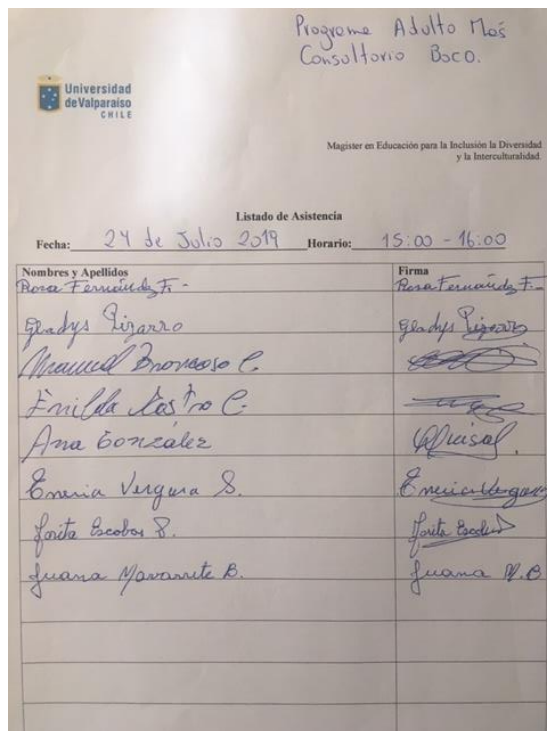 Programa Adulto Más
Consultorio Boco.
Universidad
de Valparaíso
CHILE
Magister en Educación para la Inclusión la Diversidad
y la Interculturalidad.
Listado de Asistencia
Fecha: 24 de Julio 2019 Horario: 15:00 - 16:00
Nombres y Apellidos Firma
Rosa Fernández F. - Rosa Fernández F.-
Gladys Pizarro Gladys Pizarro
Manuel Broncoso C.
Enilda Castro C.
Ana González
Eneria Vergara S. Eneria Vergara
Jorita Escobar Jorita Escobar
Juana Navarrete B. Juana N.B